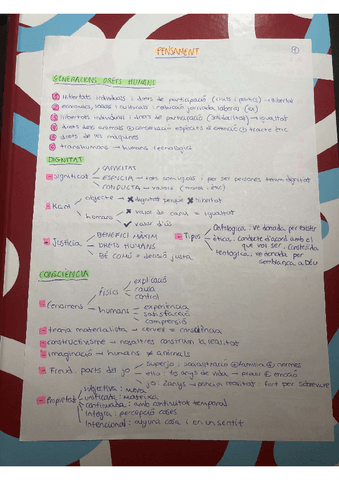 PENSAMENT
GENERACIONS DRETS HUMANS
llibertats individuals i drets de participació (civils i polítics) → llibertat
econòmics, socials i culturals :
llibertats individuals i drets de participació (solidaritat) → igualtat
drets dels animals conservació espècies extinció tracte ètic
drets de les màquines
transhumans → humans tecnològics
DIGNITAT
Significat
CAPACITAT
ESSÈNCIA → tots som iguals i per ser persones tenim dignitat
CONDUCTA → valors
Kant
objecte → dignitat perquè llibertat
humans
valor de canvi = igualtat
valor d'ús
Justícia
BENEFICI MÀXIM
DRETS HUMANS
BÉ COMÚ = decisió justa
Tipus
Ontològica : ve donada per
ètica : conducta d'acord amb el que vol ser
teològica : ve donada per semblança a Déu
CONSCIÈNCIA
Fenòmens
físics
explicació
causa
control
humans
experiència
satisfacció
comprensió
teoria materialista → cervell = consciència
constructivisme → nosaltres construïm la realitat
imaginació → humans ≠ animals
Freud: parts del jo
superjo : socialització família normes
ello : 10 anys de vida → plaer emoció
jo : 20anys → principi realitat : fort per sobreviure
Propietats
subjectiva : meva
unificada : mateixa
continuada : amb continuïtat temporal
íntegra : percepció coses
intencional : alguna cosa i en un sentit